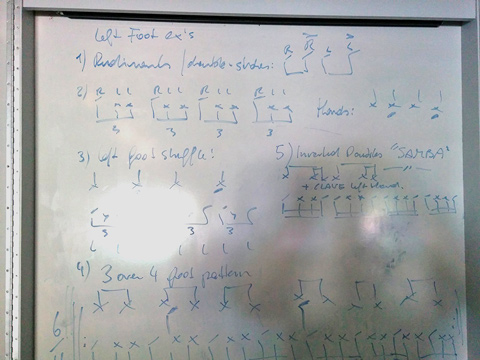 Left Foot ex's
1) Rudiments / double-strokes: R R L L
2) R L L R L L R L L R L L
3 3 3 3
Hands:
3) Left foot shuffle:
3 3 3
L L L L L
5) Inverted Doubles "SAMBA"
+ CLAVE left hand.
4) 3 over 4 foot pattern
6